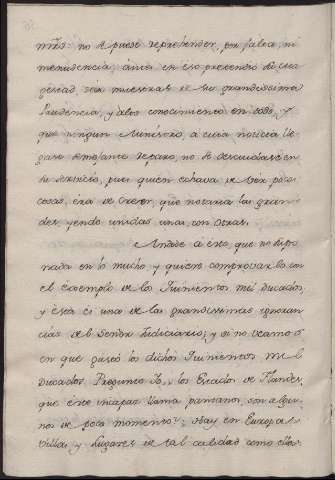 mías: no se puede reprehender, por falta, ni
menudencia, antes en eso pretendió Su Ma
gestad dar muestras de su grandissima
Prudencia, y alto conocimiento en todo, y
que ningun Ministro, á cuia noticia lle
gase semejante reparo, no se descuidase en
su servicio, pues quien echava de ver pocas
cosas, era de creer, que notaria las gran
des, yendo unidas unas con otras.
Añade á esto, que no dispo
nada en lo mucho, y quiere comprovarlo con
el exemplo de los Trecientos mil Ducados,
y esta es una de las grandissimas ignoran
cias del Señor Judiciario; y si no veamos
en que gastó los dichos Trecientos mil
Ducados. Pregunto Yo, los Estados de Flandes,
que este incapaz llama pantanos, son algu
nos de poco momento? Hay en Europa
Villas, y Lugares de tal calidad como ellos